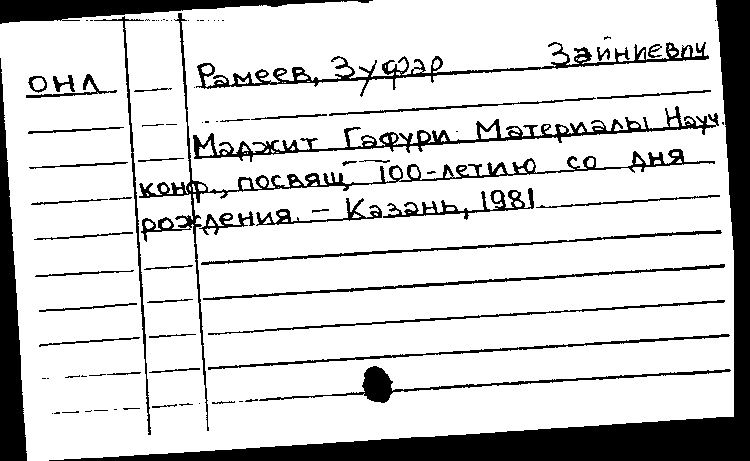 ОНЛ
Рамеев, Зуфар Зайниевич
Маджит Гафури: Материалы Науч.
конф., посвящ. 100-летию со дня
рождения. – Казань, 1981.